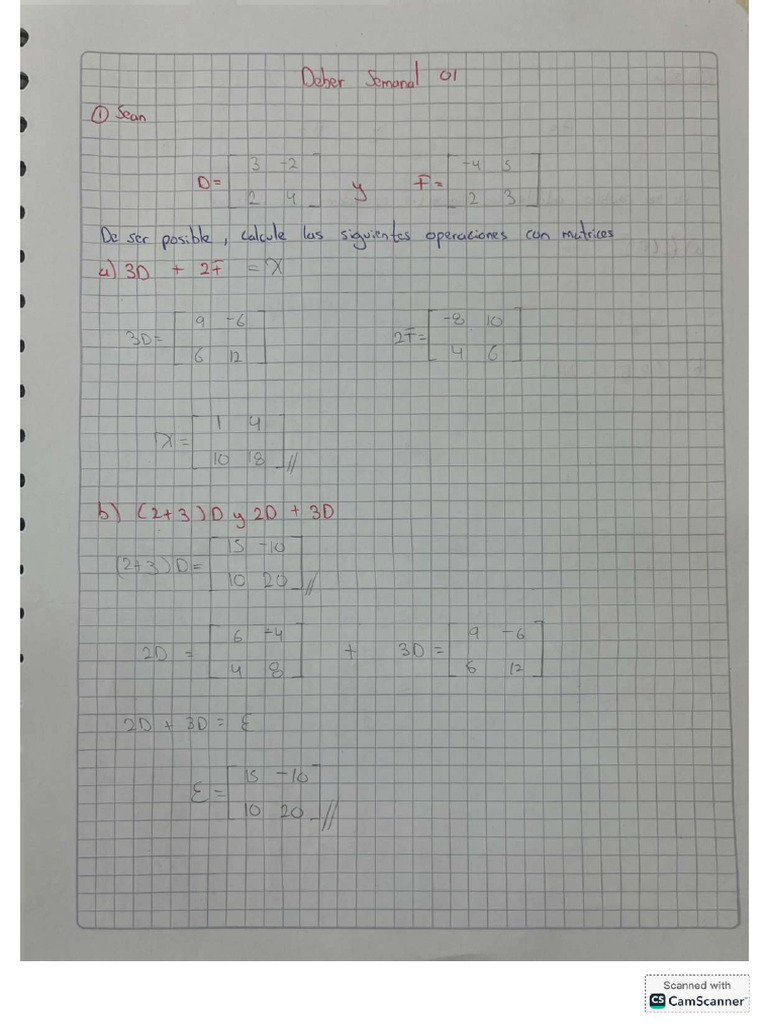 Deber Semanal 01
① Sean
D = [ 3 -2 ; 2 4 ] y F = [ -4 5 ; 2 3 ]
De ser posible, calcule las siguientes operaciones con matrices
a) 3D + 2F = X
3D = [ 9 -6 ; 6 12 ] 2F = [ -8 10 ; 4 6 ]
X = [ 1 4 ; 10 18 ] //
b) (2+3)D y 2D + 3D
(2+3)D = [ 15 -10 ; 10 20 ] //
2D = [ 6 -4 ; 4 8 ] + 3D = [ 9 -6 ; 6 12 ]
2D + 3D = E
E = [ 15 -10 ; 10 20 ] //
Scanned with
CS CamScanner